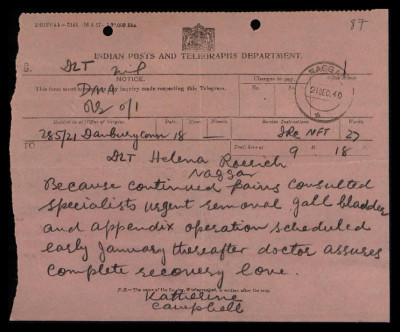 87
INDIAN POSTS AND TELEGRAPHS DEPARTMENT.
NOTICE.
This form must accompany any inquiry made respecting this Telegram.
Charges to pay.
NAGGAR
21 DEC. 40
Handed in at (Office of Origin). Date. Hour. Minute. Service Instructions. Words.
285/21 Danburyconn 18 — IRC NFT 27
9 18
DLT Helena Roerich
Naggar
Because continued pains consulted
specialists urgent removal gall bladder
and appendix operation scheduled
early January thereafter doctor assures
complete recovery love.
Katherine
Campbell